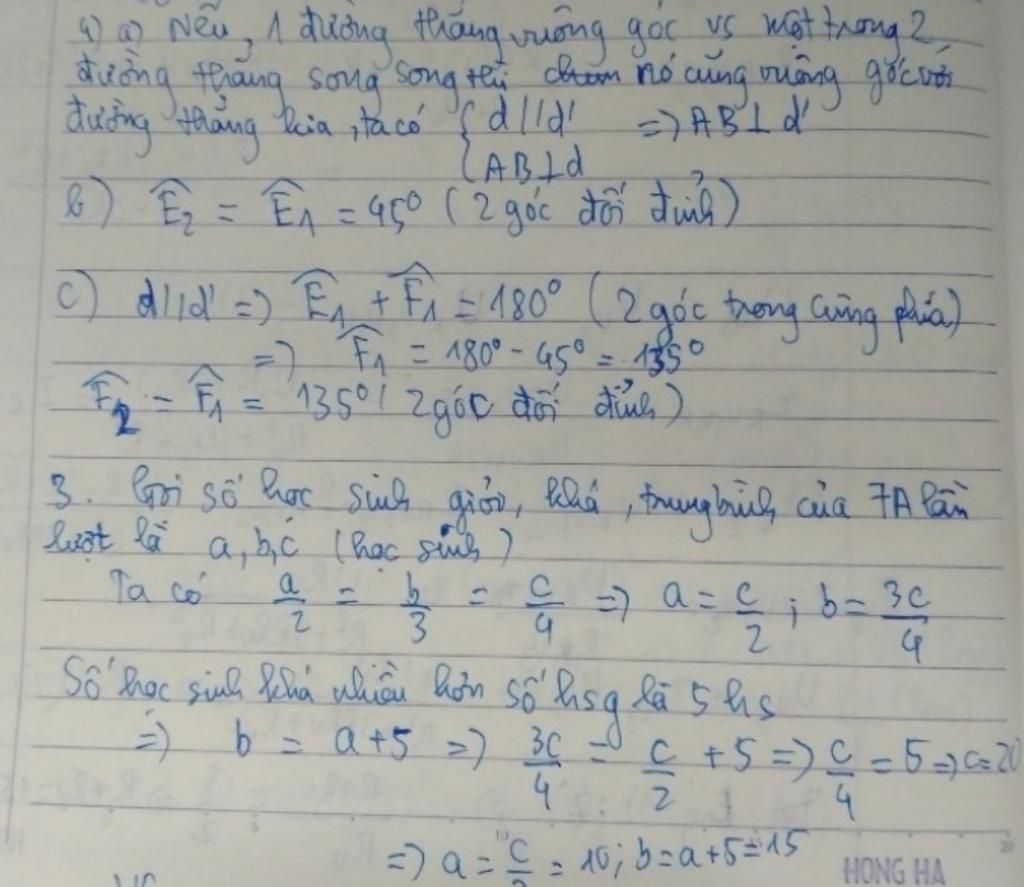 4) a) Nếu, 1 đường thẳng vuông góc vs một trong 2
đường thẳng song song thì nó cũng vuông góc với
đường thẳng kia, ta có { d//d' => AB⊥d'
AB⊥d
b) Ê₂ = Ê₁ = 45° (2 góc đối đỉnh)
c) d//d' => Ê₁ + F̂₁ = 180° (2 góc trong cùng phía)
=> F̂₁ = 180° - 45° = 135°
F̂₂ = F̂₁ = 135° (2 góc đối đỉnh)
3. Gọi số học sinh giỏi, khá, trung bình của 7A lần
lượt là a, b, c (học sinh)
Ta có a/2 = b/3 = c/4 => a = c/2 ; b = 3c/4
Số học sinh khá nhiều hơn số hsg là 5 hs
=> b = a+5 => 3c/4 = c/2 + 5 => c/4 = 5 => c=20
=> a = c/2 = 10; b = a+5=15
HONG HA